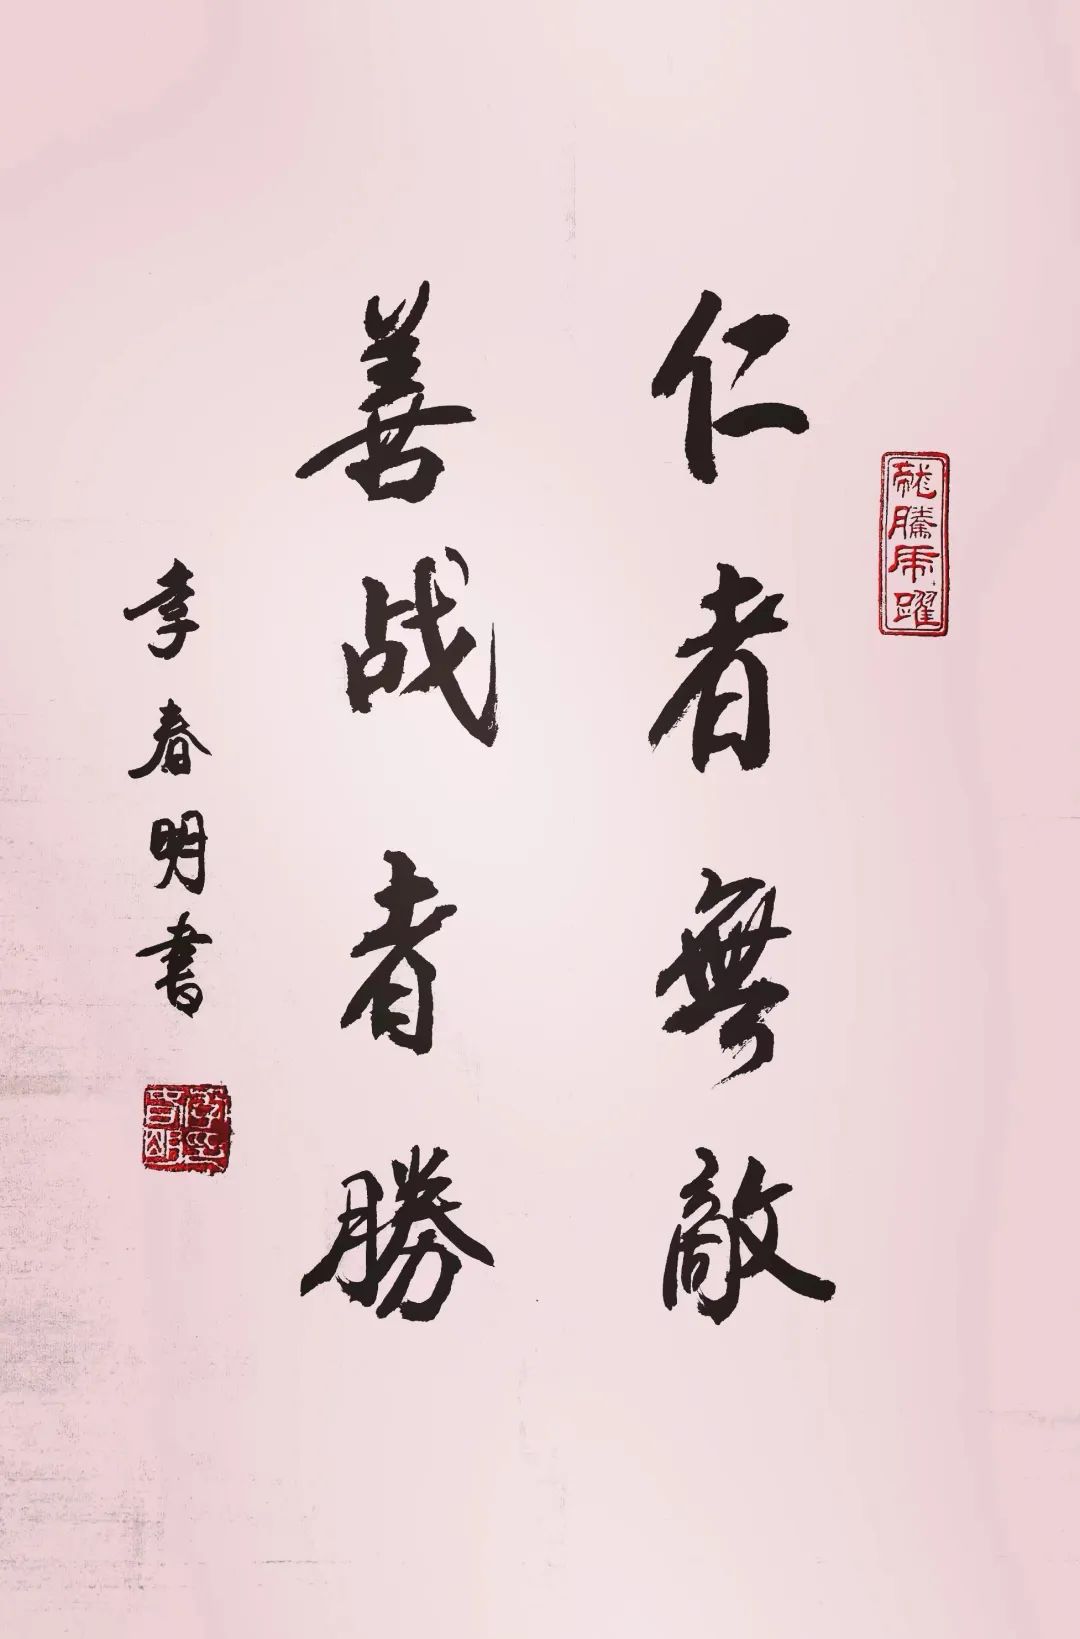 龍騰虎躍
仁者無敵
善战者勝
李春明書